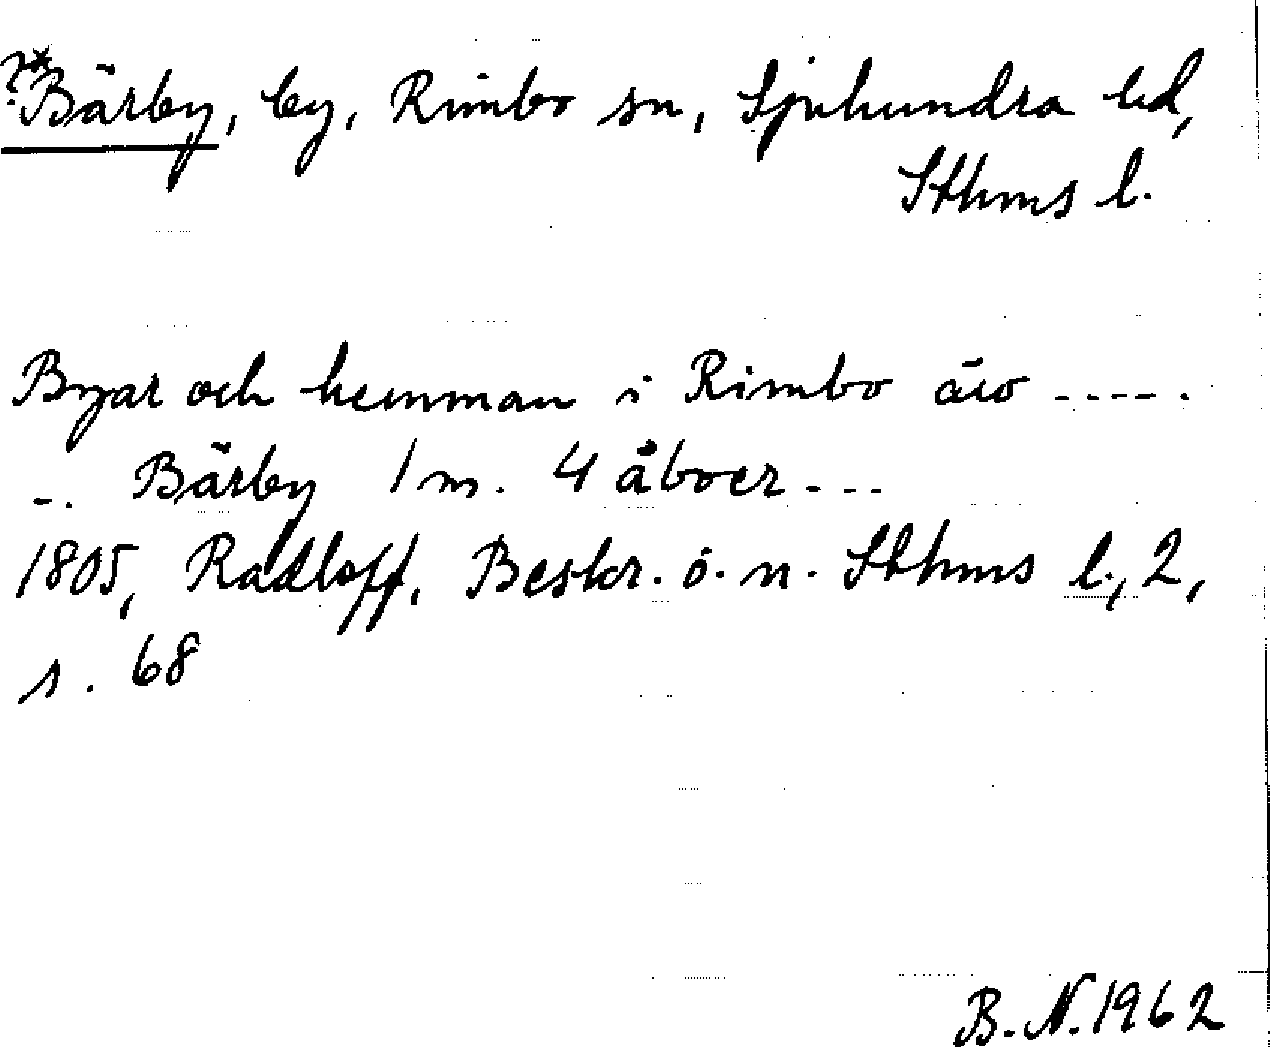 ?*Bärby, by, Rimbo sn, Sjuhundra hd,
Sthms l.
Byar och hemman i Rimbo äro -----.
-. Bärby 1 m. 4 åboer ---
1805, Radloff, Beskr. ö. n. Sthms l., 2,
s. 68
B. N. 1962